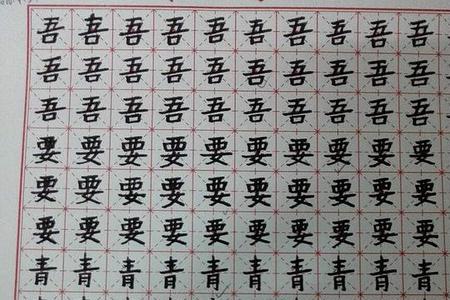 吾吾吾吾吾吾吾吾吾吾
吾吾吾吾吾吾吾吾吾吾
吾吾吾吾吾吾吾吾吾吾
要要要要要要要要要要
要要要要要要要要要要
要要要要要要要要要要
青青青青青青青青青青